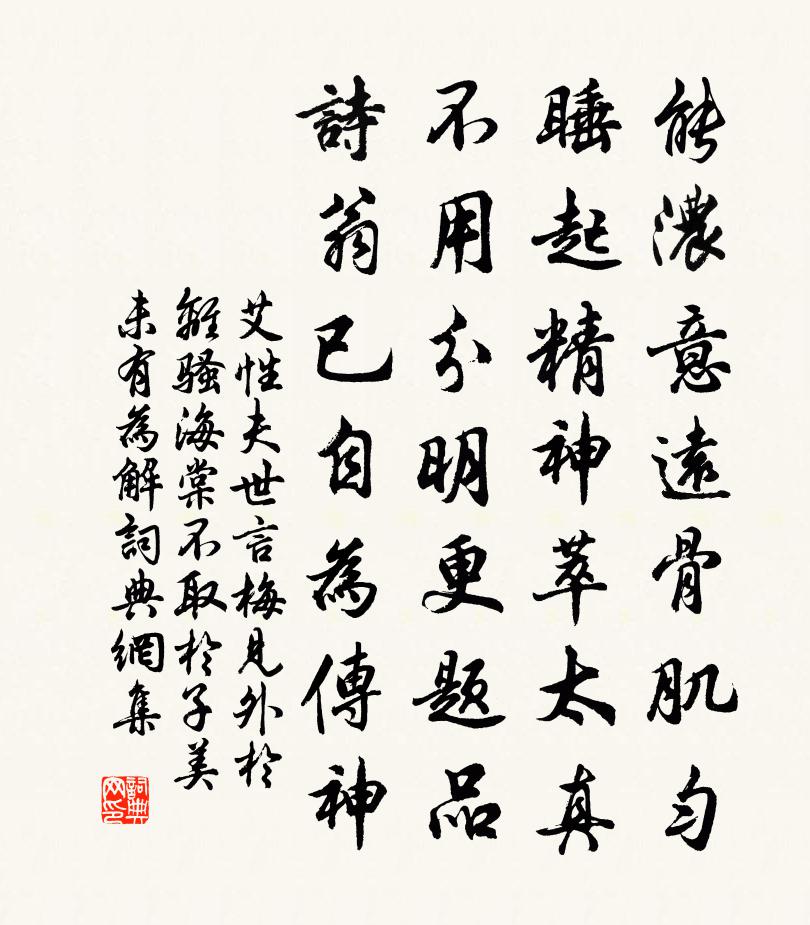 能濃意遠骨肌勻
睡起精神萃太真
不用分明更題品
詩翁已自為傳神
艾性夫世言梅見外於
離騷海棠不取於子美
未有為解詞典網集
詞典网印